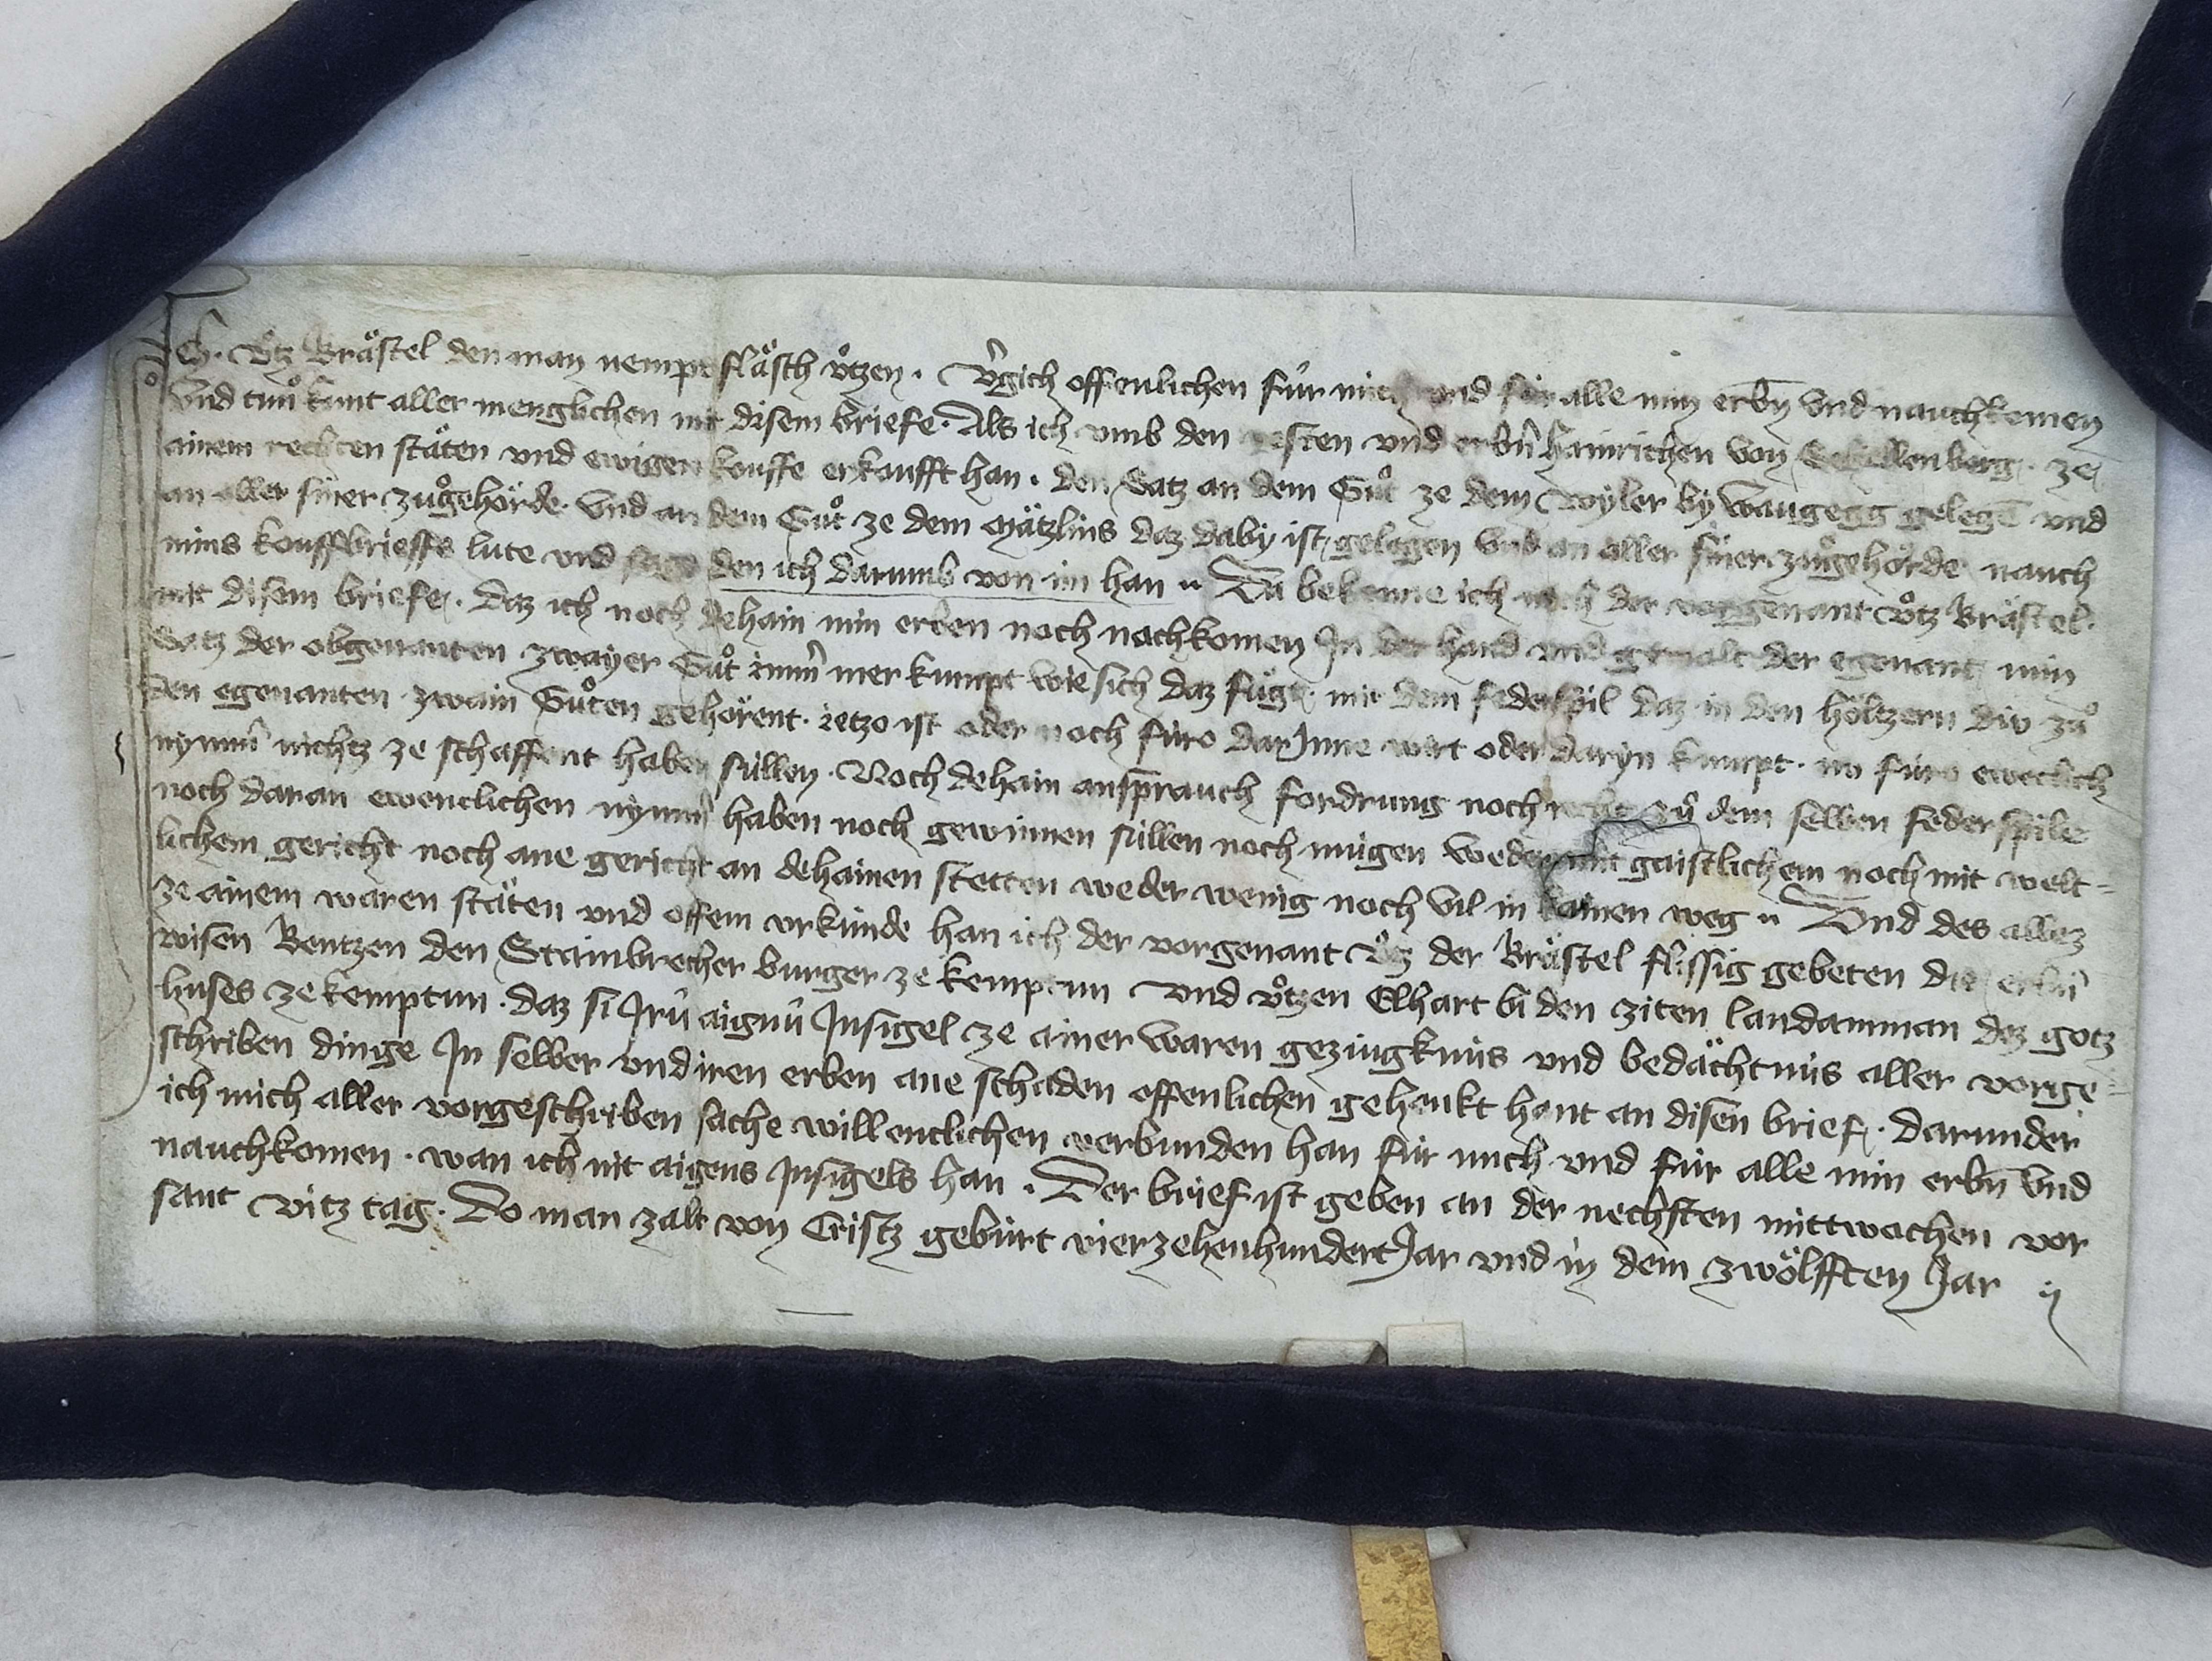 Ich. Uͦtz Braͤstel den man nempt flaͤsch uͦtzen. V̉gich offenlichen fuͤr mich und fuͤr alle min erbn̄ Und nauchkomen
Und tuͦn kunt aller menglichen mit disem briefe. Als ich umb den vesten und erbn̄ hainrichen von Schellenberg. ze
ainem rechten staͤten und ewigen kouffe erkoufft han. den Satz an dem Guͦt ze dem wyler by waugegg gelegē und
an aller siner zuͦgehoͤrde. Und an dem Guͦt ze dem Maͤtzlins daz daby ist gelegen Und an aller siner zuͦgehoͤrde nauch
mins kouffbrieffs lute und sage den ich darumb von im han ·· Da bekenne ich mich der vorgenant Uͦtz Braͤstel.
mit disem briefe. daz ich noch dehain min erben noch nachkomen In der hand und gewalt der egenant min
Satz der obgenanten zwayer Guͦt imm̄ mer kumpt wie sich daz fuͤgt. mit dem federspil daz in den hoͤltzern div zuͦ
den egenanten zwain Guͦten gehoͤrent. ietzo ist oder noch fuͤro darInne wirt oder daryn kumpt. nu fuͤro eweclich
nymm̄ nichtz ze schaffent haben suͤllen. Noch dehain ansprauch fordrung noch recht zuͦ dem selben federspile
noch daran ewenclichen nymm̄ haben noch gewinnen suͤllen noch mugen weder mit gaistlichem noch mit welt=
lichem gericht noch ane gericht an dehainen stetten weder wenig noch vil in kainen weg ·· Und des allez
ze ainem waren staͤten und offem urkuͤnde han ich der vorgenant Uͦtz der Braͤstel flissig gebeten die erbn̄
wisen Bentzen den Stainbrecher burger ze kemptun und uͦtzen Elhart bi den ziten landamman dez gotz
huses ze kemptun. daz si Irū aignū Insigel ze ainer waren gezuͤgknus und bedaͤchtnus aller vorge=
schriben dinge In selber und iren erben ane schaden offenlichen gehenkt hant an disen brief. darunder
ich mich aller vorgeschriben sache willenclichen verbunden han fuͤr mich und fuͤr alle min erbn̄ Und
nauchkomen. wan ich nit aigens Insigels han. Der brief ist geben an der nechsten mittwochen vor
sant vitz tag. Do man zalt von Cristz geburt vierzehenhundert Jar und in dem zwoͤlfften Jar